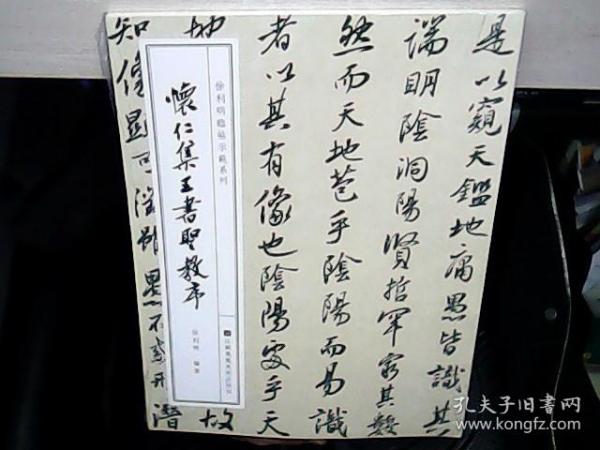 是以窺天鑑地庸愚皆識其
端明陰洞陽賢哲罕窮其數
然而天地苞乎陰陽而易識
者以其有像也陰陽處乎天
徐利明臨帖示範系列
懷仁集王書聖教序
徐利明 編著
江蘇鳳凰美術出版社
地故
知像顯可徵雖愚不惑形潛
孔夫子旧書网
www.kongfz.com